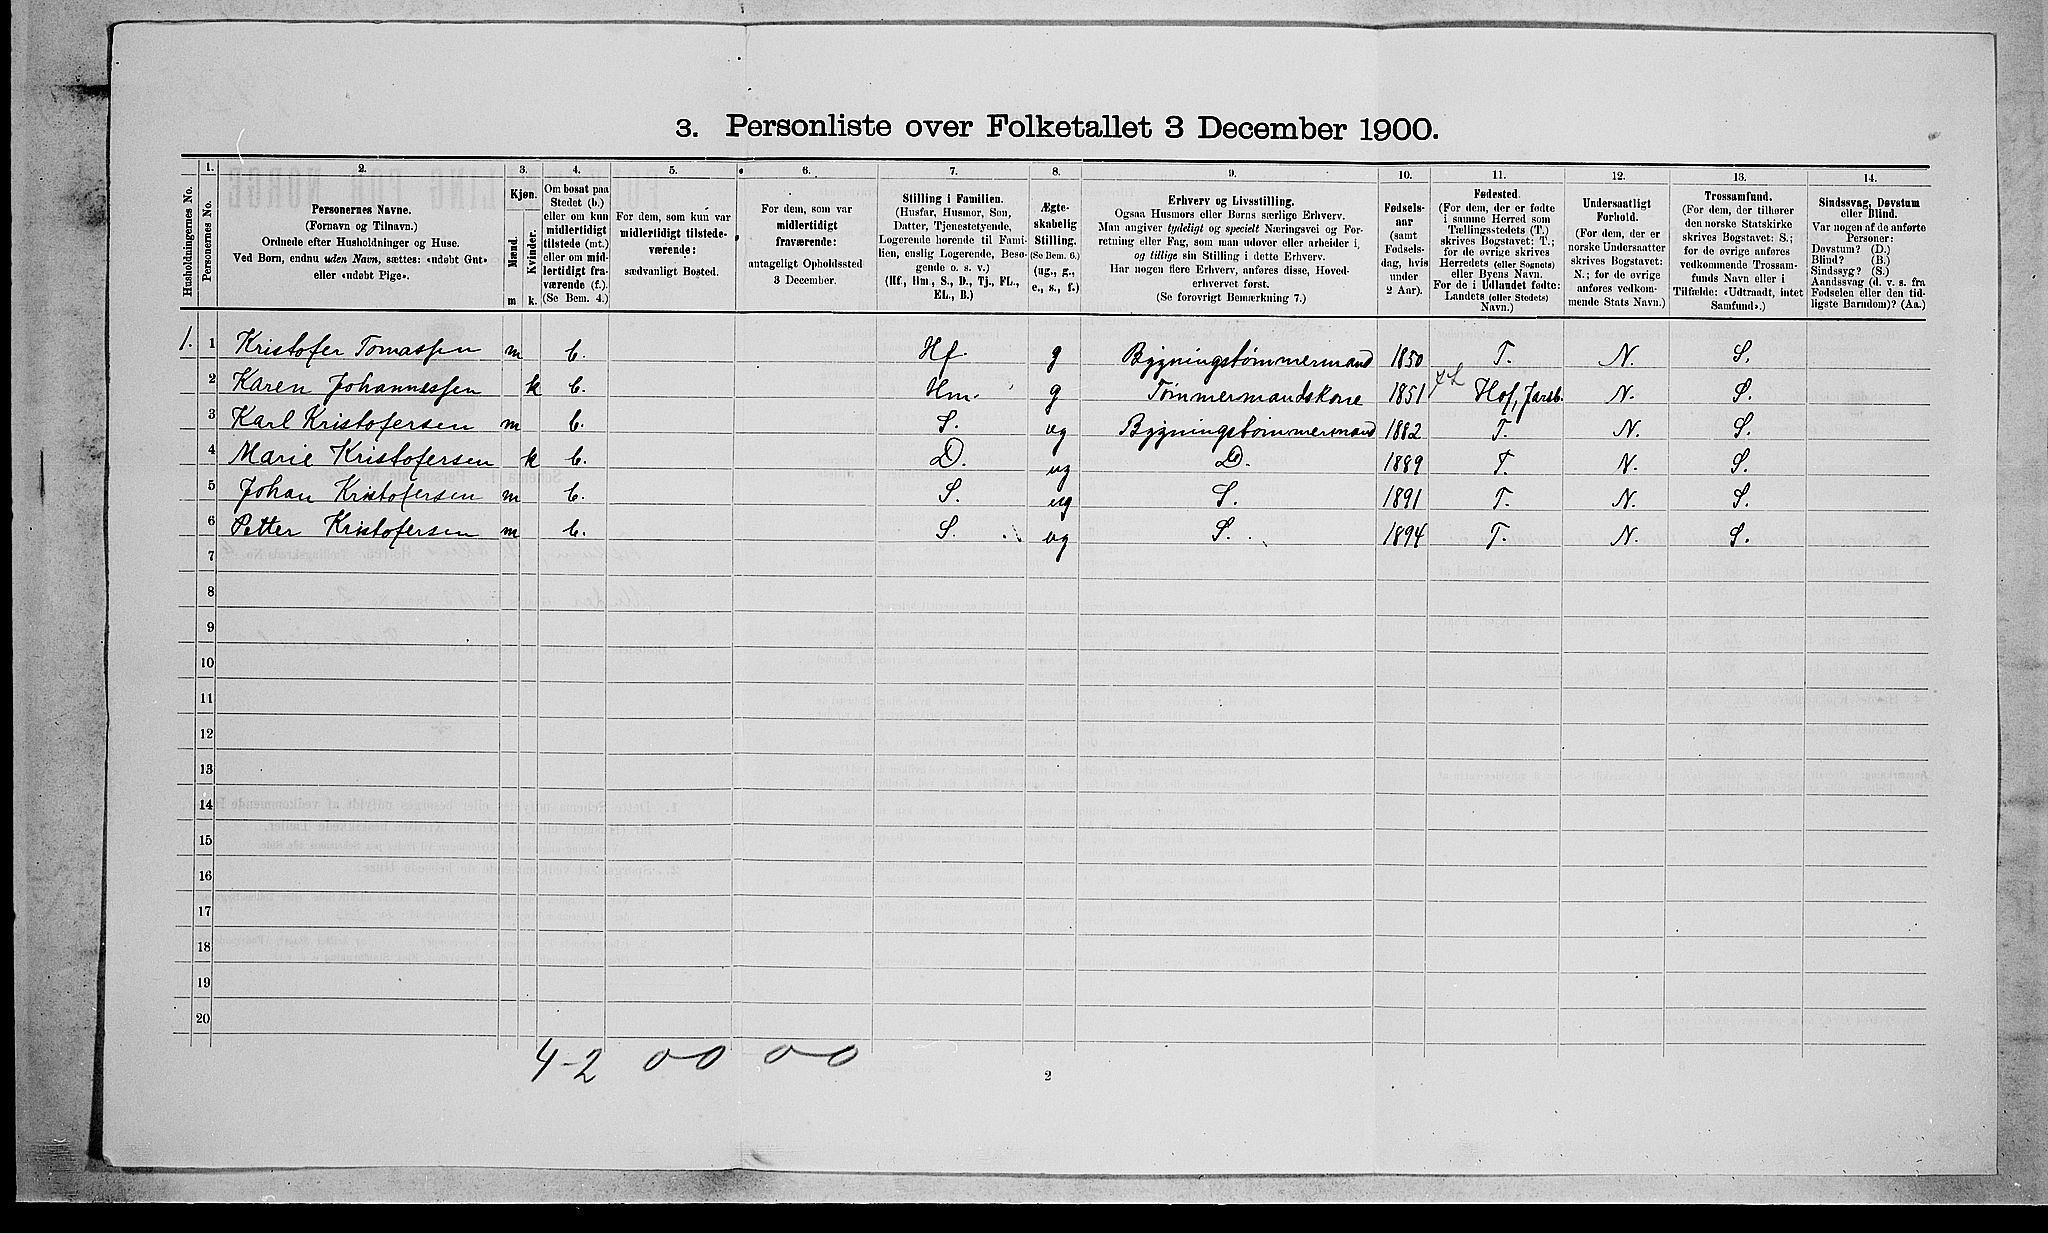 3. Personliste over Folketallet 3 December 1900.
1. 2. 3. 4. 5. 6. 7. 8. 9. 10. 11. 12. 13. 14.
Husholdningernes No.
Personernes No.
Personernes Navne.
(Fornavn og Tilnavn.)
Ordnede efter Husholdninger og Huse.
Ved Børn, endnu uden Navn, sættes: «udøbt Gut»
eller «udøbt Pige».
Kjøn.
Mænd.
Kvinder.
m k.
Om bosat paa
Stedet (b.)
eller om kun
midlertidigt
tilstede (mt.)
eller om mid-
lertidigt fra-
værende (f.).
(Se Bem. 4.)
For dem, som kun var
midlertidigt tilstede-
værende:
sædvanligt Bosted.
For dem, som var
midlertidigt
fraværende:
antageligt Opholdssted
3 December.
Stilling i Familien.
(Husfar, Husmor, Søn,
Datter, Tjenestetyende,
Logerende hørende til Fami-
lien, enslig Logerende, Besø-
gende o. s. v.)
(Hf., Hm., S., D., Tj., FL.,
EL., B.)
Ægte-
skabelig
Stilling.
(Se Bem. 6.)
(ug., g.,
e., s., f.)
Erhverv og Livsstilling.
Ogsaa Husmors eller Børns særlige Erhverv.
Man angiver tydeligt og specielt Næringsvei og For-
retning eller Fag, som man udøver eller arbeider i,
og tillige sin Stilling i dette Erhverv.
Har nogen flere Erhverv, anføres disse, Hoved-
erhvervet først.
(Se forøvrigt Bemærkning 7.)
Fødsels-
aar
(samt
Fødsels-
dag, hvis
under
2 Aar).
Fødested.
(For dem, der er fødte
i samme Herred som
Tællingsstedets (T.)
skrives Bogstavet: T.;
for de øvrige skrives
Herredets (eller Sognets)
eller Byens Navn.
For de i Udlandet fødte:
Landets (eller Stedets)
Navn.)
Undersaatligt
Forhold.
(For dem, der er
norske Undersaatter
skrives Bogstavet:
N.; for de øvrige
anføres vedkom-
mende Stats Navn.)
Trossamfund.
(For dem, der tilhører
den norske Statskirke
skrives Bogstavet: S.;
for de øvrige anføres
vedkommende Trossam-
funds Navn eller i
Tilfælde: «Udtraadt, intet
Samfund».)
Sindssvag, Døvstum
eller Blind.
Var nogen af de anførte
Personer:
Døvstum? (D.)
Blind? (B.)
Sindssyg? (S.)
Aandssvag (d. v. s. fra
Fødselen eller den tid-
ligste Barndom)? (Aa.)
1. 1 Kristofer Tomassen m b. Hf. g Bygningstømmermand 1850 T. N. S.
2 Karen Johannessen k b. Hm. g Tømmermandskone 1851 Hof, Jarlsb. N. S.
3 Karl Kristofersen m b. S. ug Bygningstømmermand 1882 T. N. S.
4 Marie Kristofersen k b. D. ug D. 1889 T. N. S.
5 Johan Kristofersen m b. S. ug S. 1891 T. N. S.
6 Petter Kristofersen m b. S. ug S. 1894 T. N. S.
7
8
9
10
11
12
13
14
15
16
17
18
19
20
4-2 0-0 0-0
2